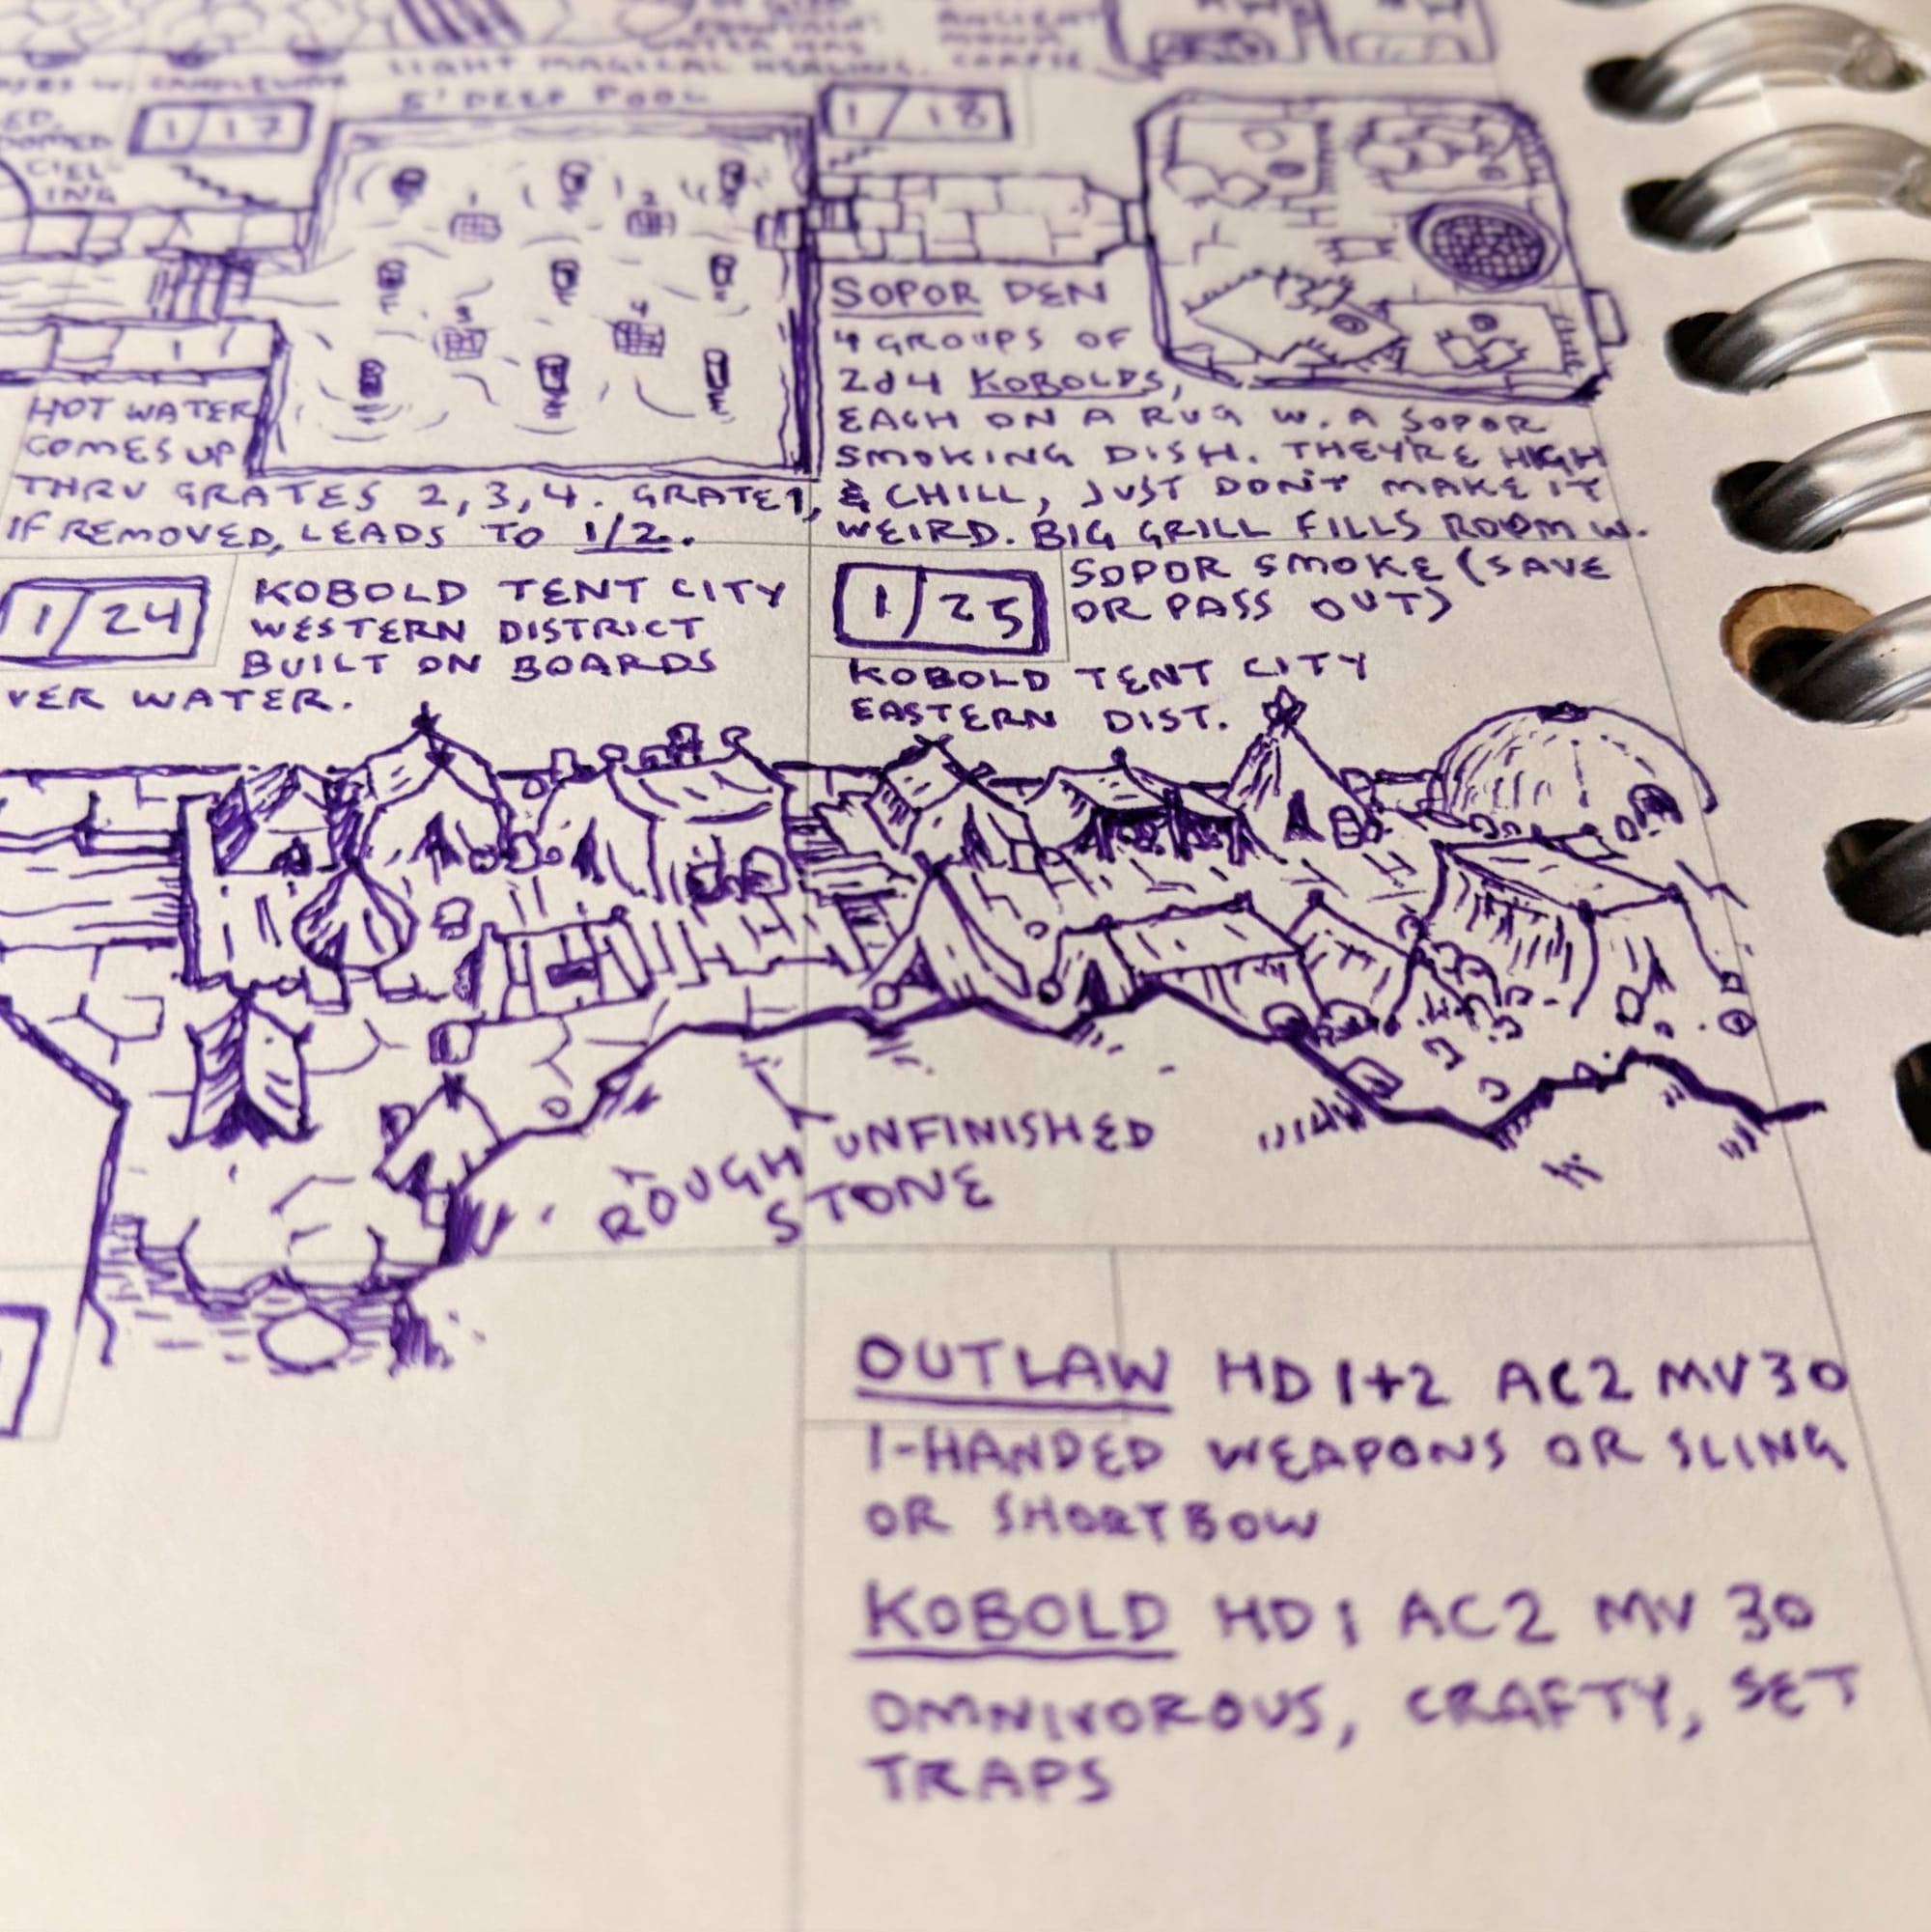 LIGHT MAGICAL HEALING.
ANCIENT
1/17
5' DEEP POOL
CIEL-
ING
1
2
3
4
HOT WATER
COMES UP
THRU GRATES 2, 3, 4. GRATE 1,
IF REMOVED, LEADS TO 1/2.
1/18
SOPOR DEN
4 GROUPS OF
2d4 KOBOLDS,
EACH ON A RUG W. A SOPOR
SMOKING DISH. THEY'RE HIGH
& CHILL, JUST DON'T MAKE IT
WEIRD. BIG GRILL FILLS ROOM W.
SOPOR SMOKE (SAVE
OR PASS OUT)
1/24
KOBOLD TENT CITY
WESTERN DISTRICT
BUILT ON BOARDS
VER WATER.
1/25
KOBOLD TENT CITY
EASTERN DIST.
ROUGH UNFINISHED
STONE
OUTLAW HD 1+2 AC2 MV 30
1-HANDED WEAPONS OR SLING
OR SHORTBOW
KOBOLD HD 1 AC2 MV 30
OMNIVOROUS, CRAFTY, SET
TRAPS